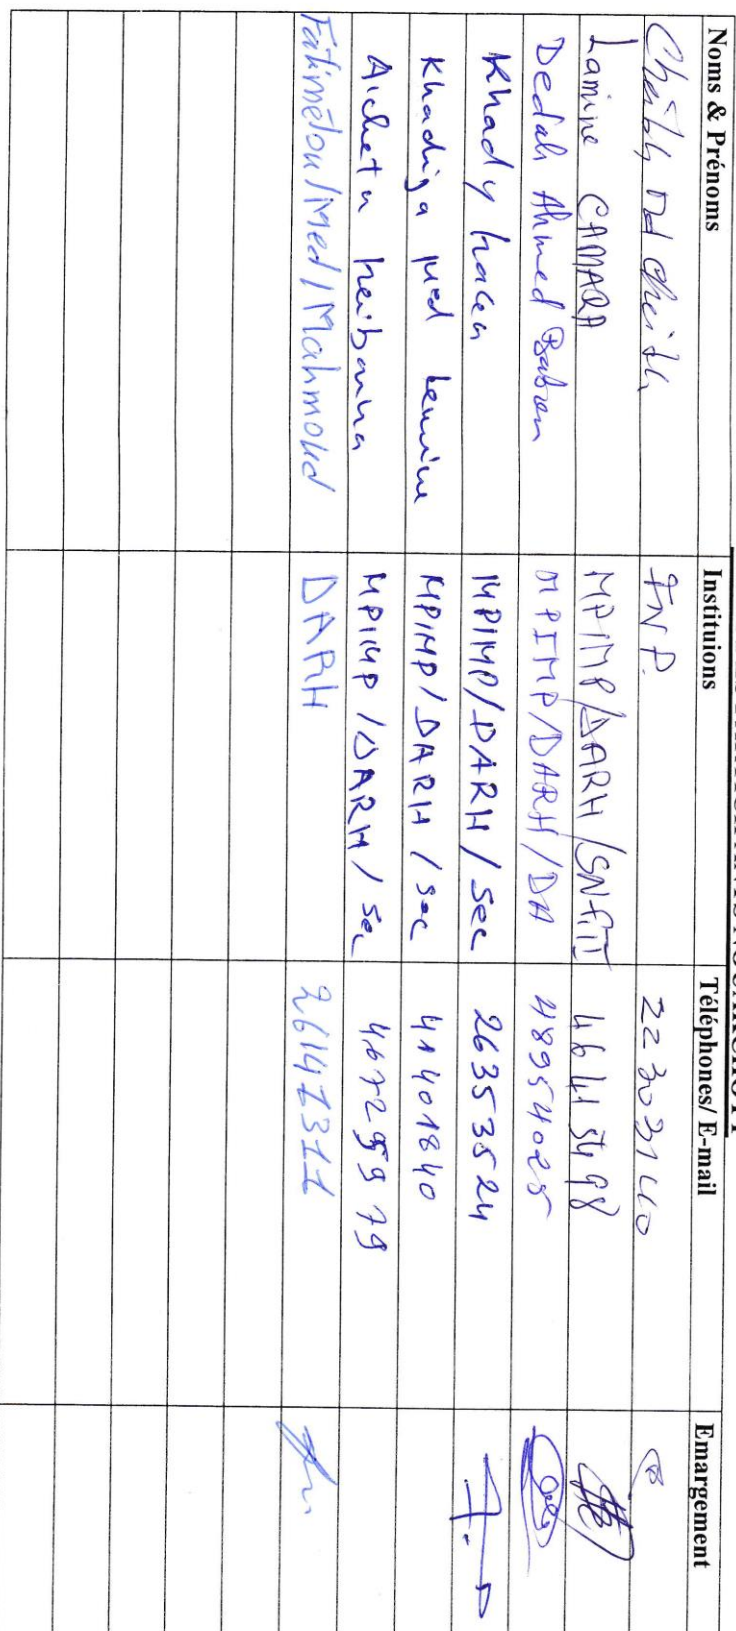 Noms & Prénoms Instituions Téléphones/ E-mail Emargement
Cheikh Md Cheikh 22303140
Lamine CAMARA MPIMP/DARH/ 46413498
Dedah Ahmed MPIMP/DARH/DA 48954025
Khady MPIMP/DARH/Sec 26353524
Khadija med lemine MPIMP/DARH/sec 41401840
Aicheta MPIMP/DARH/Sec 46729979
Fatimétou/Med/Mahmoud DARH 26141311